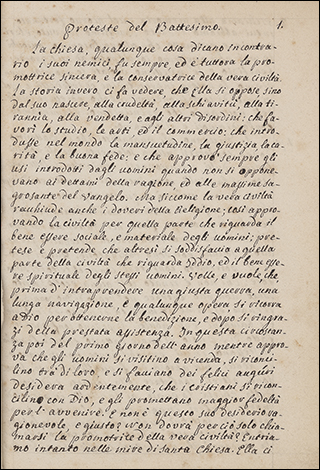 Proteste del Battesimo. 1.
La chiesa, qualunque cosa dicano incontra-
rio i suoi nemici, fu sempre, ed è tuttora la pro-
motrice sincera, e la conservatrice della vera civiltà.
La storia invero ci fa vedere, che Ella si oppose sino
dal suo nascere, alla crudeltà, alla schiavitù, alla ti-
rannia, alla vendetta, e agli altri disordini: che fa-
vorì lo studio, le arti, ed il commercio; che intro-
dusse nel mondo la mansuetudine, la giustizia, la ca-
rità e la buona fede; e che approvò sempre gli
usi introdotti dagli uomini quando non si oppone-
vano ai dettami della ragione, ed alle massime sa-
grosante del Vangelo. Ma siccome la vera civiltà
racchiude anche i doveri della Religione; così appro-
vando la civiltà per quella parte che riguarda il
bene essere sociale, e materiale degli uomini, pre-
tese e pretende che altresì si soddisfaccia a quella
parte della civiltà che riguarda Iddio, ed il ben esse-
re spirituale degli stessi uomini. Volle, e vuole che
prima d'intraprendere una giusta guerra, una
lunga navigazione, e qualunque opera si ricorra
a Dio per ottenerne la benedizione, e dopo si ringra-
zi della prestata assistenza. In questa circostan-
za poi del primo giorno dell'anno mentre appro-
va che gli uomini si visitino a vicenda, si riconci-
lino tra di loro, e si facciano dei felici auguri
desidera ardentemente, che i cristiani si ricon-
cilino con Dio, e gli promettano maggior fedeltà
per l'avvenire. E non è questo suo desiderio ra-
gionevole, e giusto? Non dovrà perciò solo chia-
marsi la promotrice della vera civiltà? Entria-
mo intanto nelle mire di santa chiesa. Ella ci